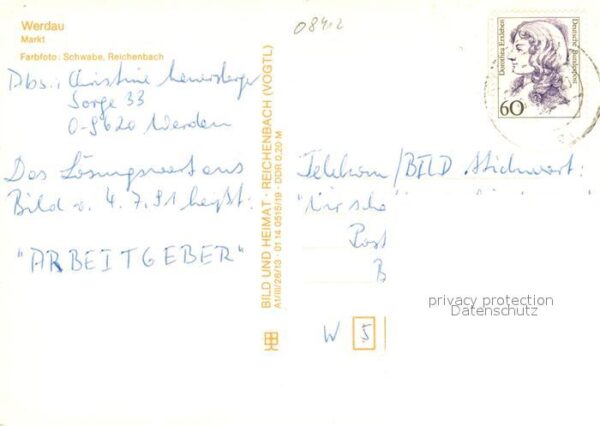 Werdau
Markt
Farbfoto: Schwabe, Reichenbach
0842
Dorothea Erxleben
Deutsche Bundespost
60
Abs.: Christine
Sorge 33
O-9620 Werdau
Das Lösungswort aus
Bild v. 4.7.91 heißt:
"ARBEITGEBER"
BILD UND HEIMAT · REICHENBACH (VOGTL)
A1/III/26/13 · 01 14 0515/19 · DDR 0,20 M
Telekom/BILD Stichwort:
Post
B
W 5
privacy protection
Datenschutz